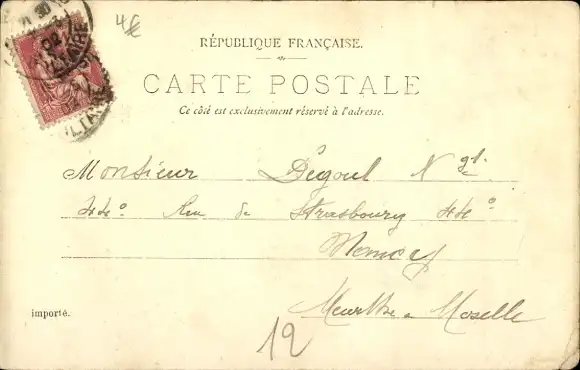 4€
RÉPUBLIQUE FRANÇAISE.
CARTE POSTALE
Ce côté est exclusivement réservé à l'adresse.
Monsieur Dégoul
Rue de Strasbourg
Nancy
Meurthe & Moselle
importé.
12